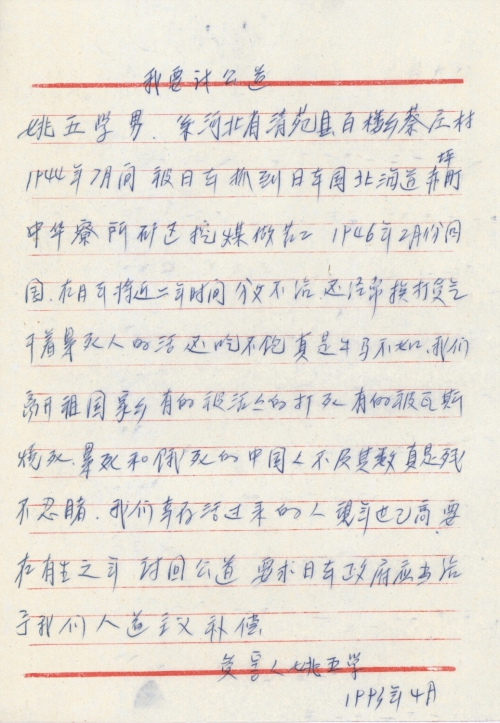 我要讨公道
姚五学 男、 系河北省清苑县百楼乡蔡庄村
1944年7月间 被日本抓到日本国北海道赤平町
中华寮所矿区挖煤做苦工 1946年2月份回
国、在日本将近二年时间 分文不给、还经常挨打受气
干着累死人的活 还吃不饱 真是牛马不如、我们
离开祖国家乡 有的被活々的打死 有的被瓦斯
烧死、累死和饿死的中国人不及其数 真是残
不忍睹、我们幸存活过来的人 现年也已高 要
在有生之年 讨回公道 要求日本政府应当给
于我们人道主义补偿、
受害人 姚五学
年4月